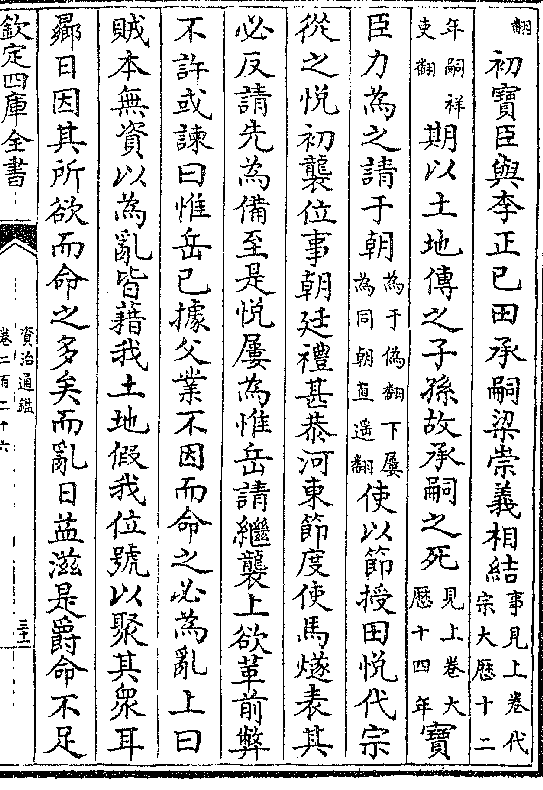 翻初寶臣與李正己田承嗣梁崇義相結事見上卷代宗大厯十二
年嗣祥吏翻期以土地傳之子孫故承嗣之死見上卷大厯十四年寶
臣力為之請于朝為于偽翻下屢為同朝直遥翻使以節授田悦代宗
從之悦初襲位事朝廷禮甚恭河東節度使馬燧表其
必反請先為備至是悦屢為惟岳請繼襲上欲革前弊
不許或諫曰惟岳已據父業不因而命之必為亂上曰
賊本無資以為亂皆藉我土地假我位號以聚其衆耳
曏日因其所欲而命之多矣而亂日益滋是爵命不足
欽定四庫全書
資治通鑑
卷二百二十六